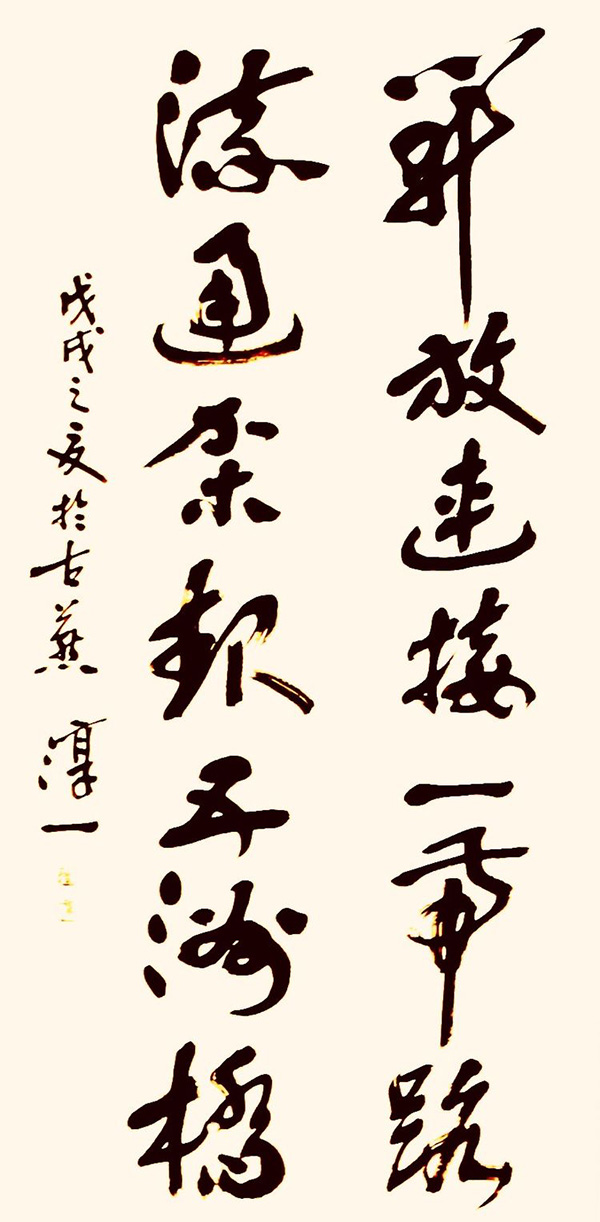 開放連接一帶路
流通架五洲橋
戊戌之夏於古燕 淳一